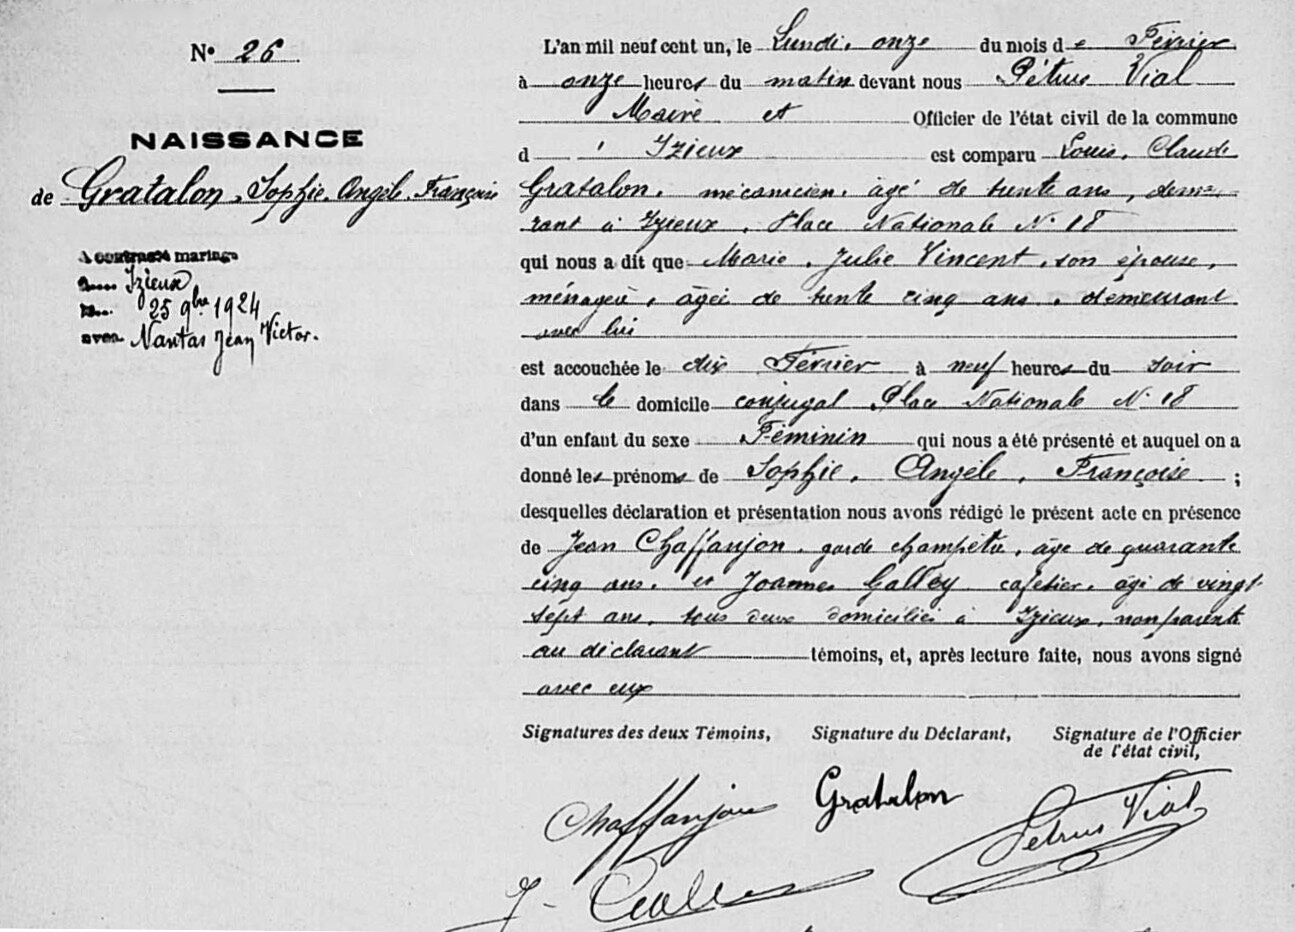 N° 26
NAISSANCE
de Gratalon, Sophie, Angèle, Françoise
A contracté mariage
Izieux
25 9bre 1924
avec Nantas Jean Victor.
L'an mil neuf cent un, le Lundi, onze du mois de Février
à onze heures du matin devant nous Pétrus Vial
Maire et Officier de l'état civil de la commune
d' Izieux est comparu Louis, Claude
Gratalon, mécanicien, âgé de trente ans, demeu-
rant à Izieux, Place Nationale N° 18
qui nous a dit que Marie, Julie Vincent, son épouse,
ménagère, âgée de trente cinq ans, demeurant
avec lui
est accouchée le dix Février à neuf heures du soir
dans le domicile conjugal Place Nationale N° 18
d'un enfant du sexe Féminin qui nous a été présenté et auquel on a
donné les prénoms de Sophie, Angèle, Françoise ;
desquelles déclaration et présentation nous avons rédigé le présent acte en présence
de Jean Chaffanjon, garde champêtre, âgé de quarante
cinq ans, et Joannes Galley cafetier, âgé de vingt-
sept ans, tous deux domiciliés à Izieux, non parents
au déclarant témoins, et, après lecture faite, nous avons signé
avec eux
Signatures des deux Témoins, Signature du Déclarant, Signature de l'Officier
de l'état civil,
Chaffanjon Gratalon Pétrus Vial
J. Galley